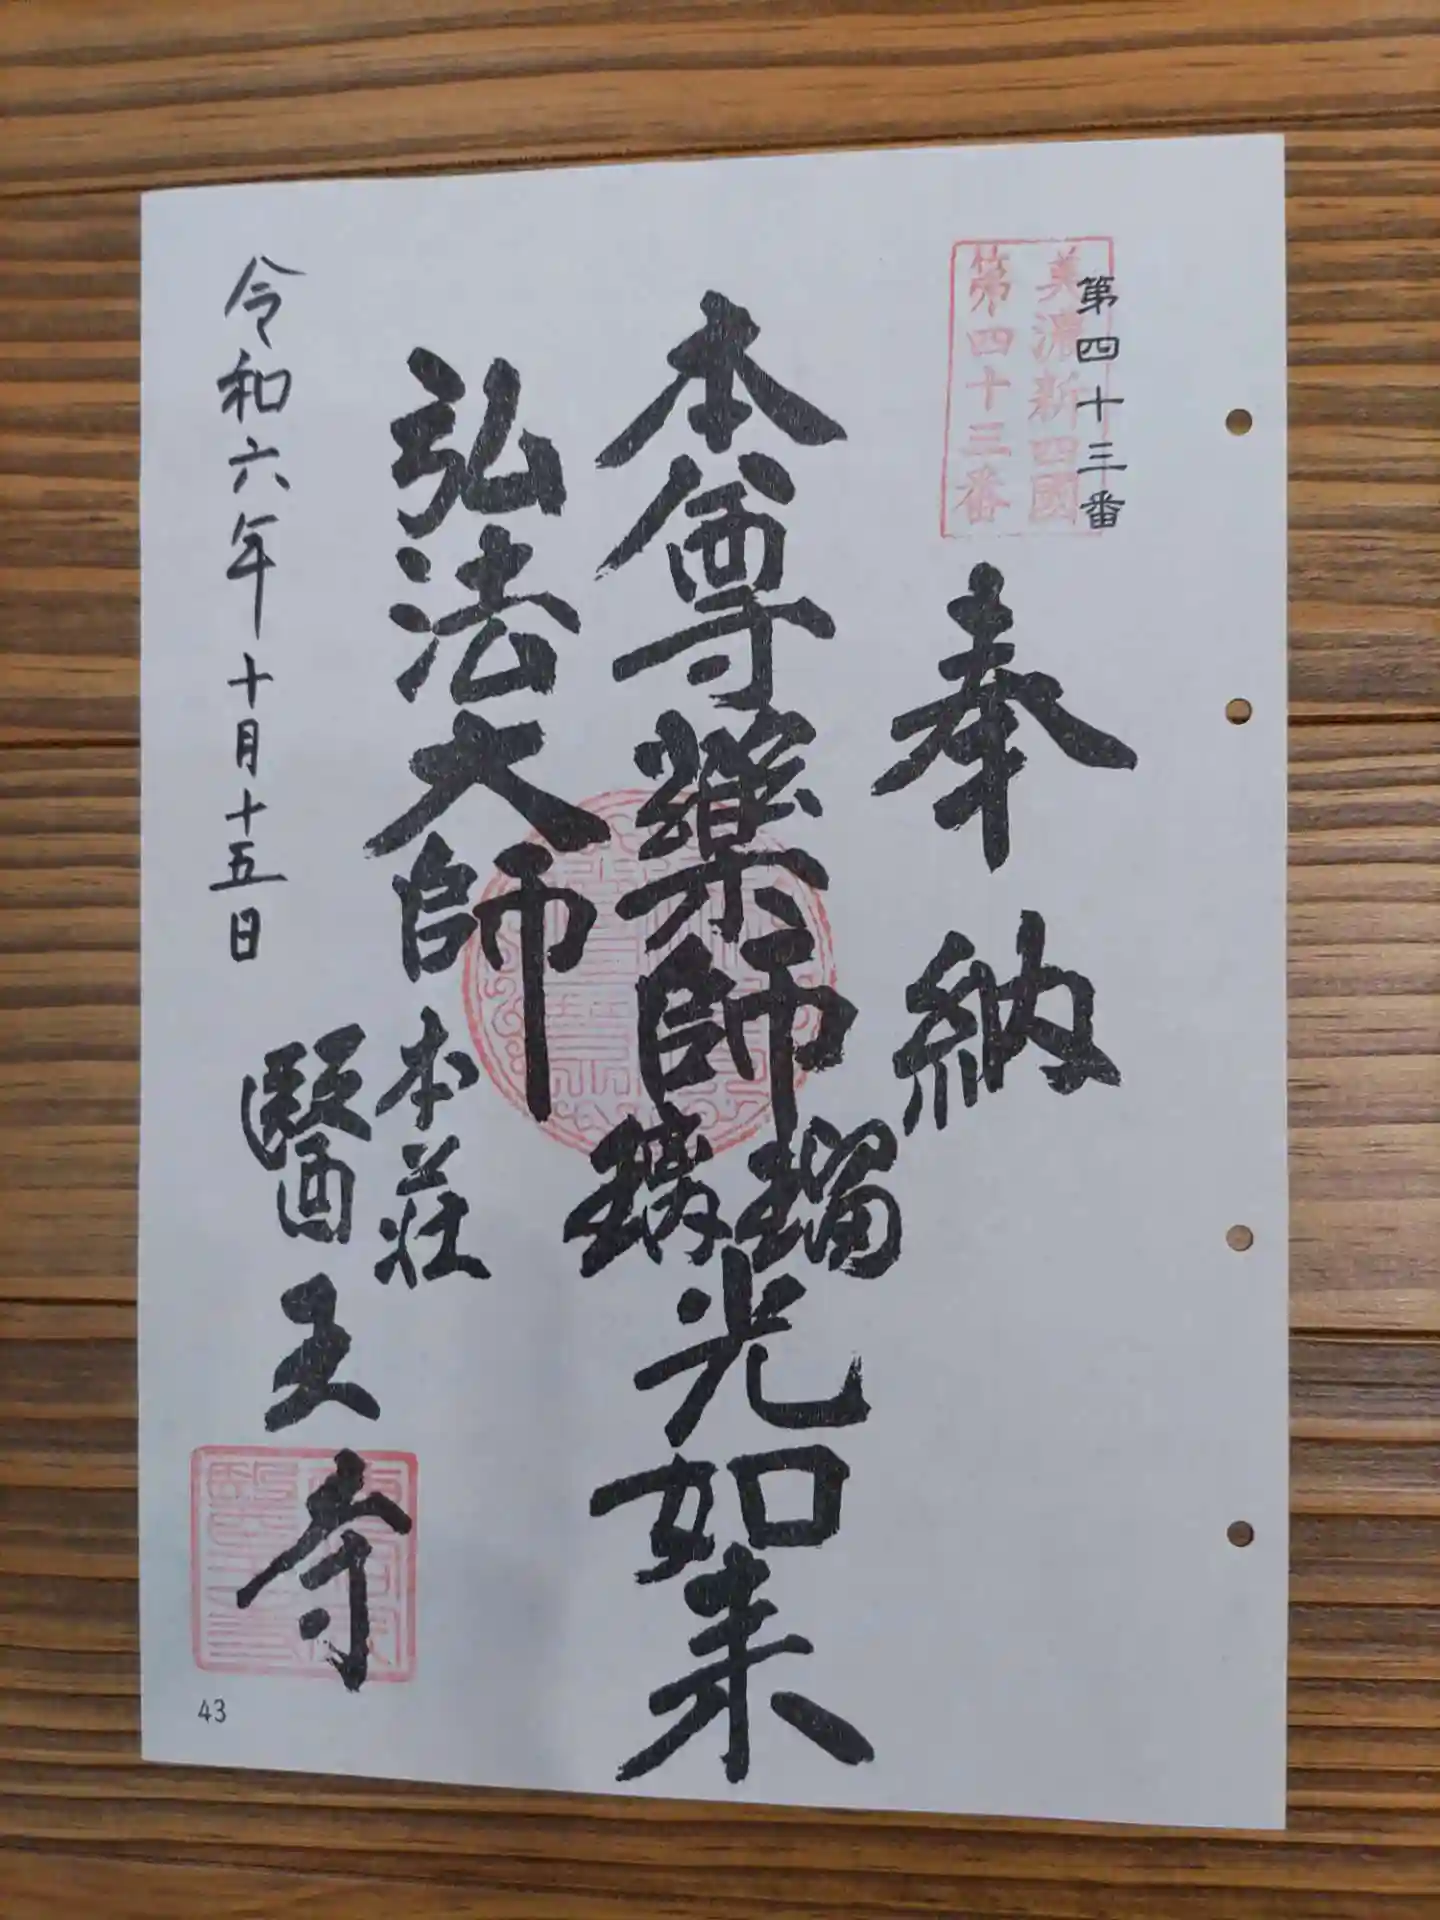 第四十三番
美濃新四國
第四十三番
奉納
本尊薬師瑠璃光如来
弘法大師
本荘
醫王寺
令和六年十月十五日
43